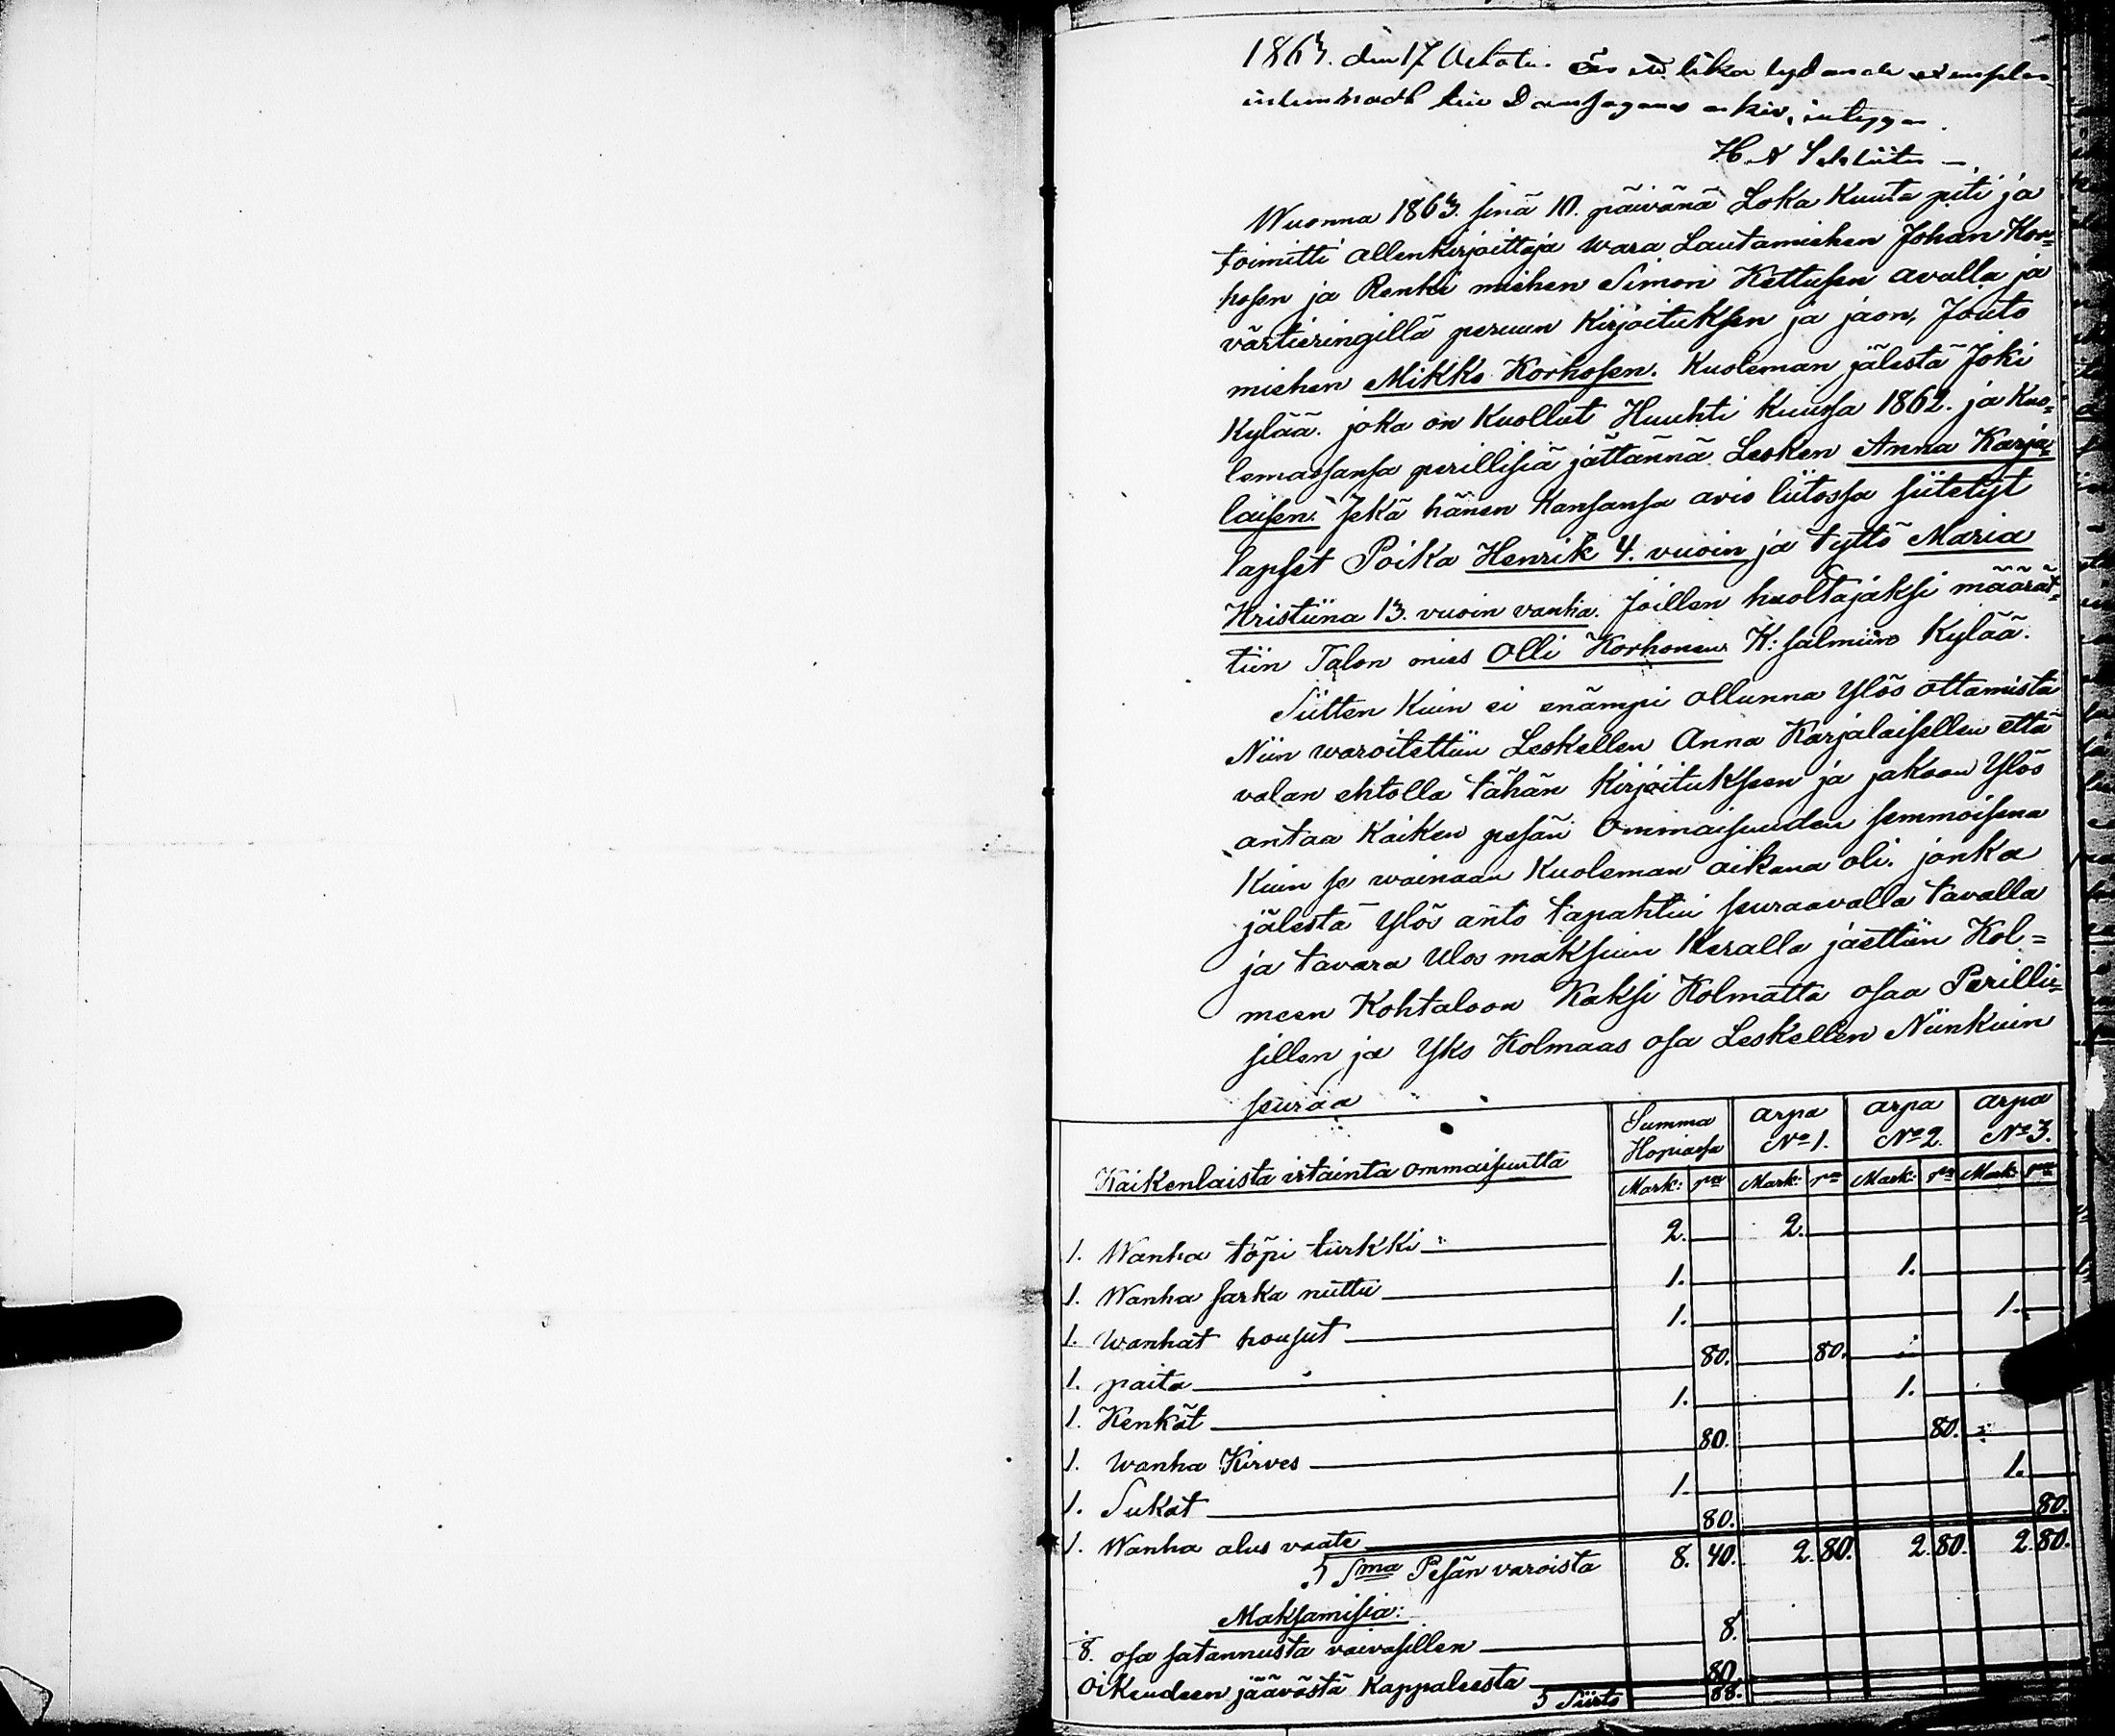 1863. den 17 October. Ens lika lydande exemplar
inlemnadt till Domsagans arkiv, intygar
H. A Schlüter
Wuonna 1863. sinä 10. päivänä Loka Kuuta piti ja
toimitti allenkirjoittaja wara Lautamiehen Johan Kor=
hosen ja Renki miehen Simon Kettusen avulla ja
värtieringillä peruun Kirjoituksen ja jaon, Jouto
miehen Mikko Korhosen. Kuoleman jälestä Joki
Kylää. joka on Kuollut Huuhti kuussa 1862. ja Kuo=
lemassansa perillisiä jättännä Lesken Anna Karja=
laisen. sekä hänen kanssansa avio liitossa siitetyt
lapset Poika Henrik 4. vuoin ja tyttö Maria
Kristiina 13. vuoin vanha. Joillen huoltajaksi määrät=
tiin Talon mies Olli Korhonen K: salmiin Kylää.
Siitten Kuin ei enämpi ollunna Ylös ottamista
Niin waroitettiin Leskellen Anna Karjalaisellen että
valan ehtolla tähän Kirjoitukseen ja jakoon Ylös
antaa Kaiken pesän Ommaisuuden semmoisena
Kuin se wainaan Kuoleman aikana oli. jonka
jälestä Ylös anto tapahtui seuraavalla tavalla
ja tavara Ulos maksuin Keralla jaettiin Kol=
meen Kohtaloon Kaksi Kolmatta osaa Perilli=
sillen ja Yks Kolmaas osa Leskellen Niinkuin
seuraa
Summa Hopiassa arpa No 1. arpa No 2. arpa No 3.
Kaikenlaista irtainta ommaisuutta Mark: pna Mark: pna Mark: pna Mark: pna
1. Wanha töpi turkki 2. 2.
1. Wanha sarka nuttu 1. 1.
1. Wanhat housut 1. 1.
1. paita 80. 80.
1. Kenkät 1. 1.
1. Wanha Kirves 80. 80.
1. Sukat 1. 1.
1. Wanha alus vaate 80. 80.
Sma Pesän varoista 8. 40. 2. 80. 2. 80. 2. 80.
Maksamisia:
8. osa satannusta vaivasillen 8.
Oikeudeen jäävästä Kappaleesta 80.
Siirto 88.